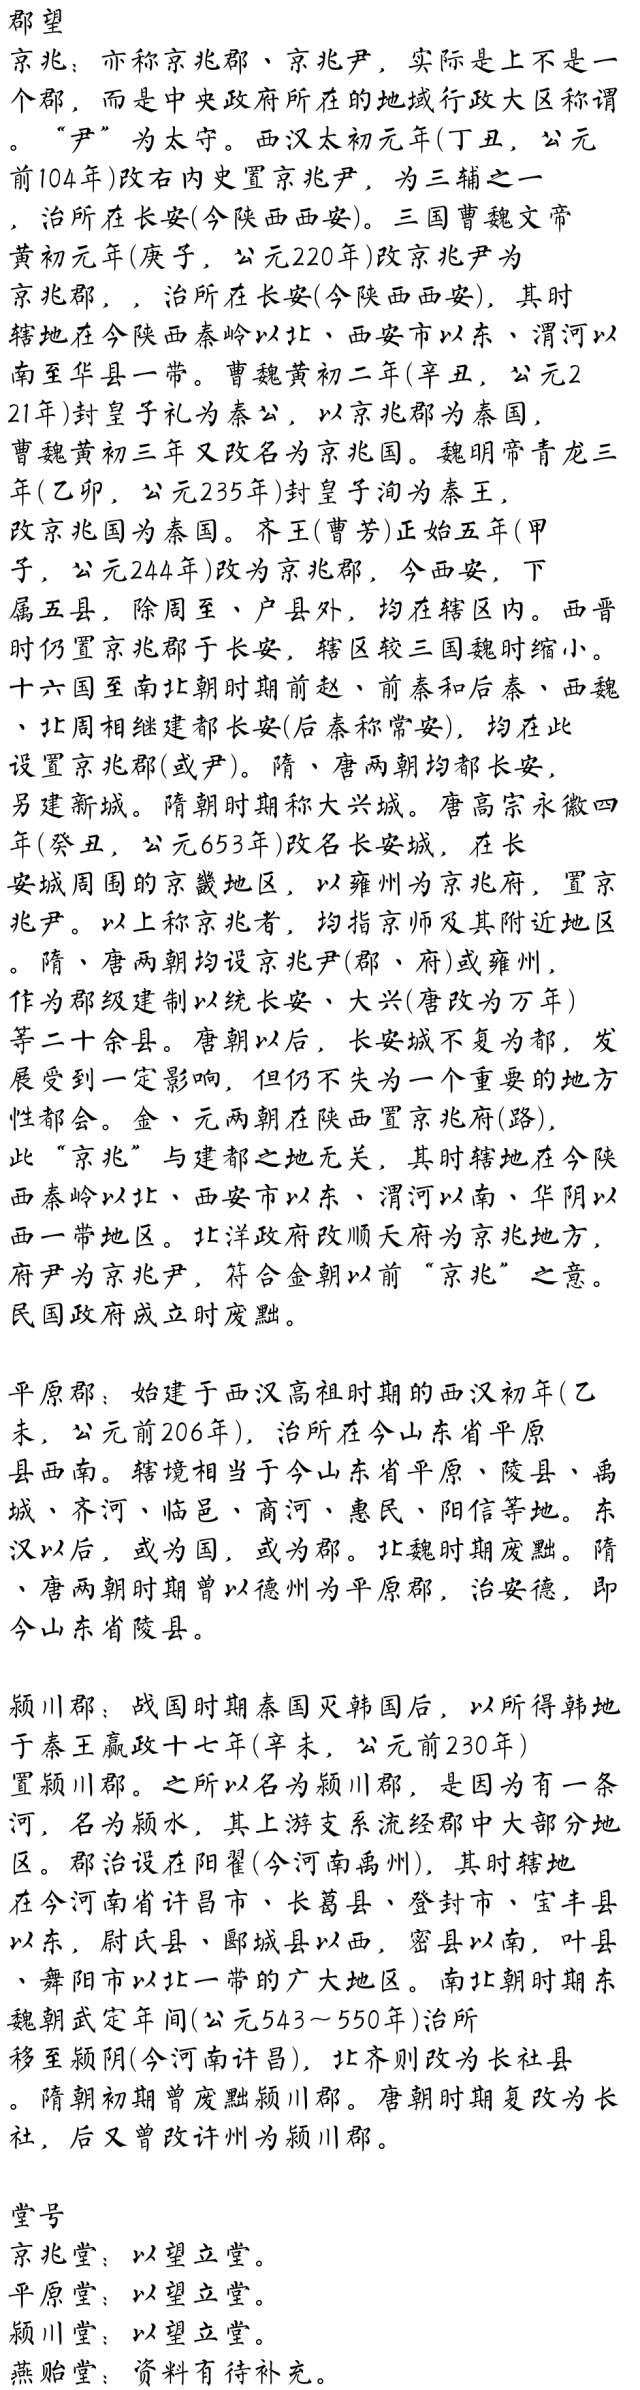 郡望
京兆：亦称京兆郡、京兆尹，实际是上不是一
个郡，而是中央政府所在的地域行政大区称谓
。“尹”为太守。西汉太初元年(丁丑，公元
前104年)改右内史置京兆尹，为三辅之一
，治所在长安(今陕西西安)。三国曹魏文帝
黄初元年(庚子，公元220年)改京兆尹为
京兆郡，，治所在长安(今陕西西安)，其时
辖地在今陕西秦岭以北、西安市以东、渭河以
南至华县一带。曹魏黄初二年(辛丑，公元2
21年)封皇子礼为秦公，以京兆郡为秦国，
曹魏黄初三年又改名为京兆国。魏明帝青龙三
年(乙卯，公元235年)封皇子洵为秦王，
改京兆国为秦国。齐王(曹芳)正始五年(甲
子，公元244年)改为京兆郡，今西安，下
属五县，除周至、户县外，均在辖区内。西晋
时仍置京兆郡于长安，辖区较三国魏时缩小。
十六国至南北朝时期前赵、前秦和后秦、西魏
、北周相继建都长安(后秦称常安)，均在此
设置京兆郡(或尹)。隋、唐两朝均都长安，
另建新城。隋朝时期称大兴城。唐高宗永徽四
年(癸丑，公元653年)改名长安城，在长
安城周围的京畿地区，以雍州为京兆府，置京
兆尹。以上称京兆者，均指京师及其附近地区
。隋、唐两朝均设京兆尹(郡、府)或雍州，
作为郡级建制以统长安、大兴(唐改为万年)
等二十余县。唐朝以后，长安城不复为都，发
展受到一定影响，但仍不失为一个重要的地方
性都会。金、元两朝在陕西置京兆府(路)，
此“京兆”与建都之地无关，其时辖地在今陕
西秦岭以北、西安市以东、渭河以南、华阴以
西一带地区。北洋政府改顺天府为京兆地方，
府尹为京兆尹，符合金朝以前“京兆”之意。
民国政府成立时废黜。

平原郡：始建于西汉高祖时期的西汉初年(乙
未，公元前206年)，治所在今山东省平原
县西南。辖境相当于今山东省平原、陵县、禹
城、齐河、临邑、商河、惠民、阳信等地。东
汉以后，或为国，或为郡。北魏时期废黜。隋
、唐两朝时期曾以德州为平原郡，治安德，即
今山东省陵县。

颍川郡：战国时期秦国灭韩国后，以所得韩地
于秦王赢政十七年(辛未，公元前230年)
置颍川郡。之所以名为颍川郡，是因为有一条
河，名为颍水，其上游支系流经郡中大部分地
区。郡治设在阳翟(今河南禹州)，其时辖地
在今河南省许昌市、长葛县、登封市、宝丰县
以东，尉氏县、郾城县以西，密县以南，叶县
、舞阳市以北一带的广大地区。南北朝时期东
魏朝武定年间(公元543～550年)治所
移至颍阴(今河南许昌)，北齐则改为长社县
。隋朝初期曾废黜颍川郡。唐朝时期复改为长
社，后又曾改许州为颍川郡。

堂号
京兆堂：以望立堂。
平原堂：以望立堂。
颍川堂：以望立堂。
燕贻堂：资料有待补充。